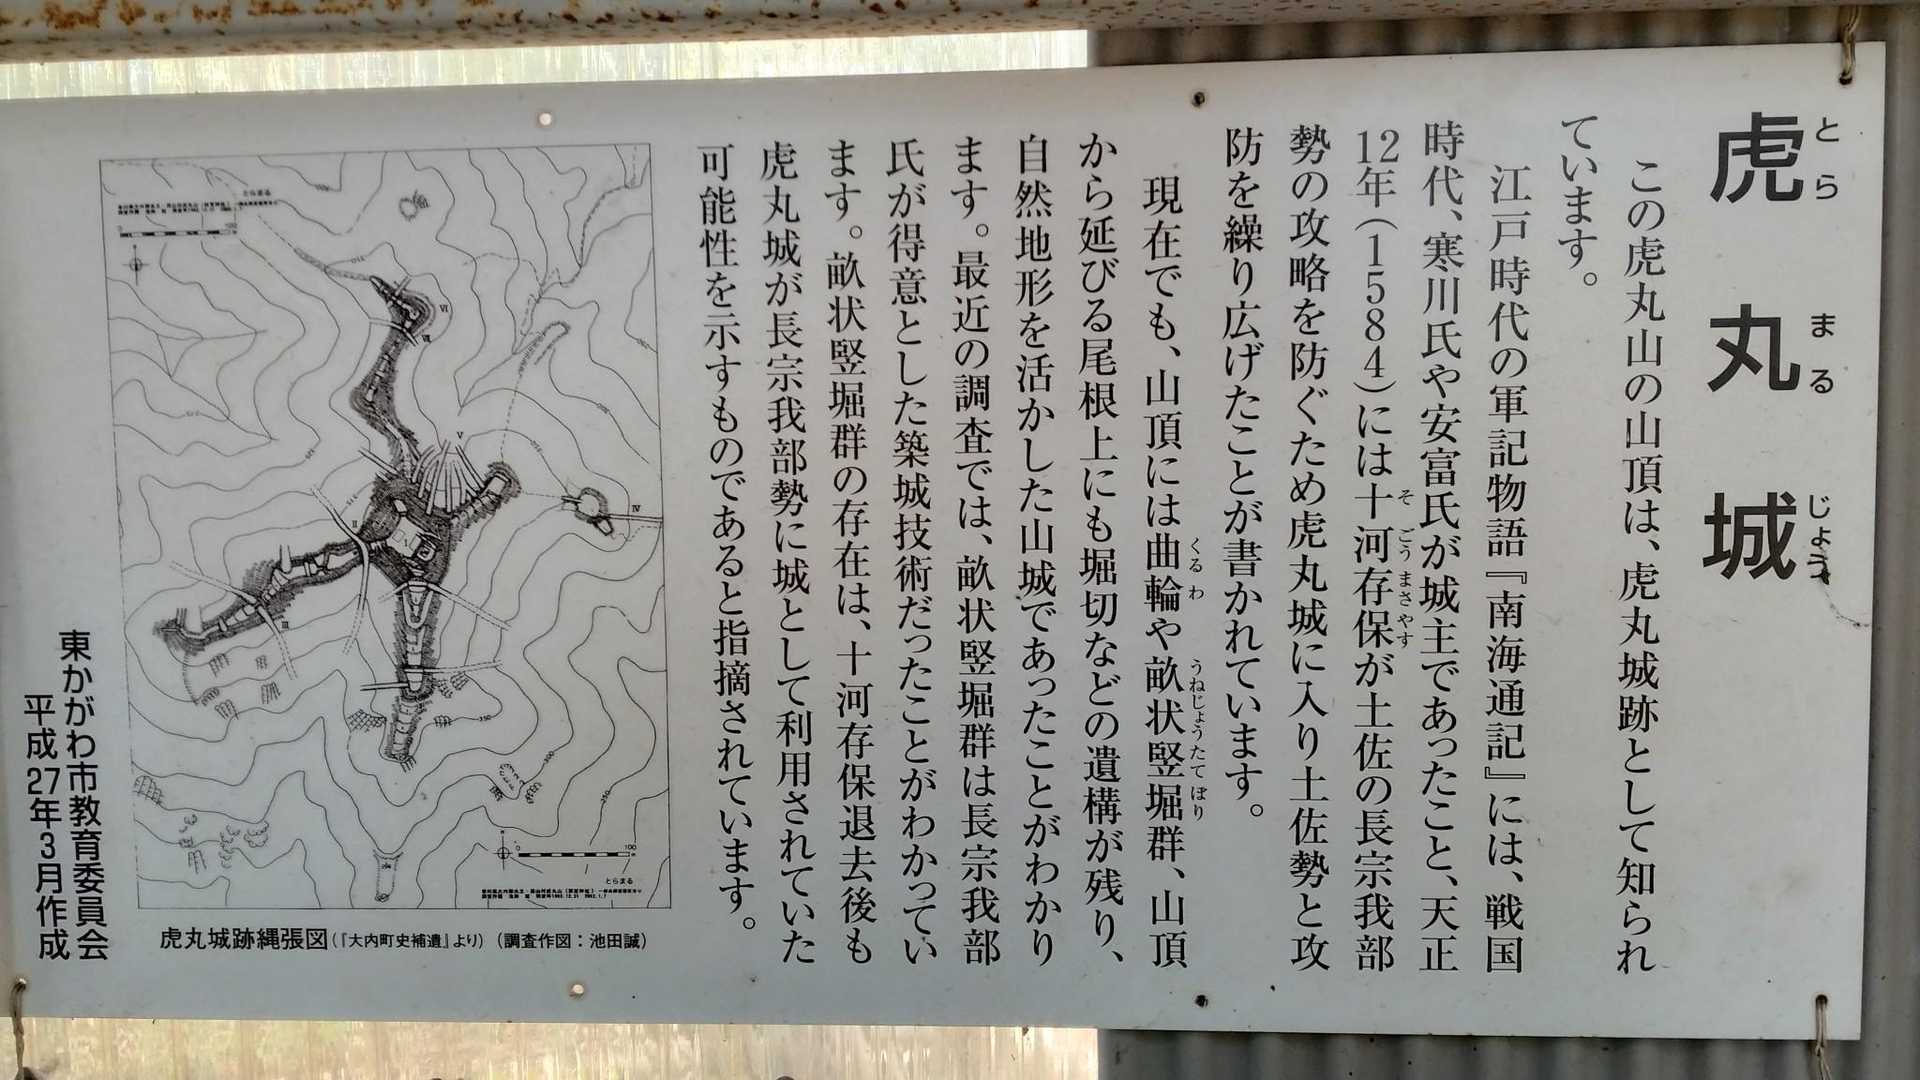 虎丸城
とらまるじょう
この虎丸山の山頂は、虎丸城跡として知られ
ています。
江戸時代の軍記物語『南海通記』には、戦国
時代、寒川氏や安富氏が城主であったこと、天正
12年(1584)には十河存保が土佐の長宗我部
そごうまさやす
勢の攻略を防ぐため虎丸城に入り土佐勢と攻
防を繰り広げたことが書かれています。
現在でも、山頂には曲輪や畝状竪堀群、山頂
くるわ
うねじょうたてぼり
から延びる尾根上にも堀切などの遺構が残り、
自然地形を活かした山城であったことがわかり
ます。最近の調査では、畝状竪堀群は長宗我部
氏が得意とした築城技術だったことがわかってい
ます。畝状竪堀群の存在は、十河存保退去後も
虎丸城が長宗我部勢に城として利用されていた
可能性を示すものであると指摘されています。
とらまる
VI
VII
V
IV
II
I
III
0 100
とらまる
虎丸城跡縄張図(『大内町史補遺』より)(調査作図:池田誠)
東かがわ市教育委員会
平成27年3月作成